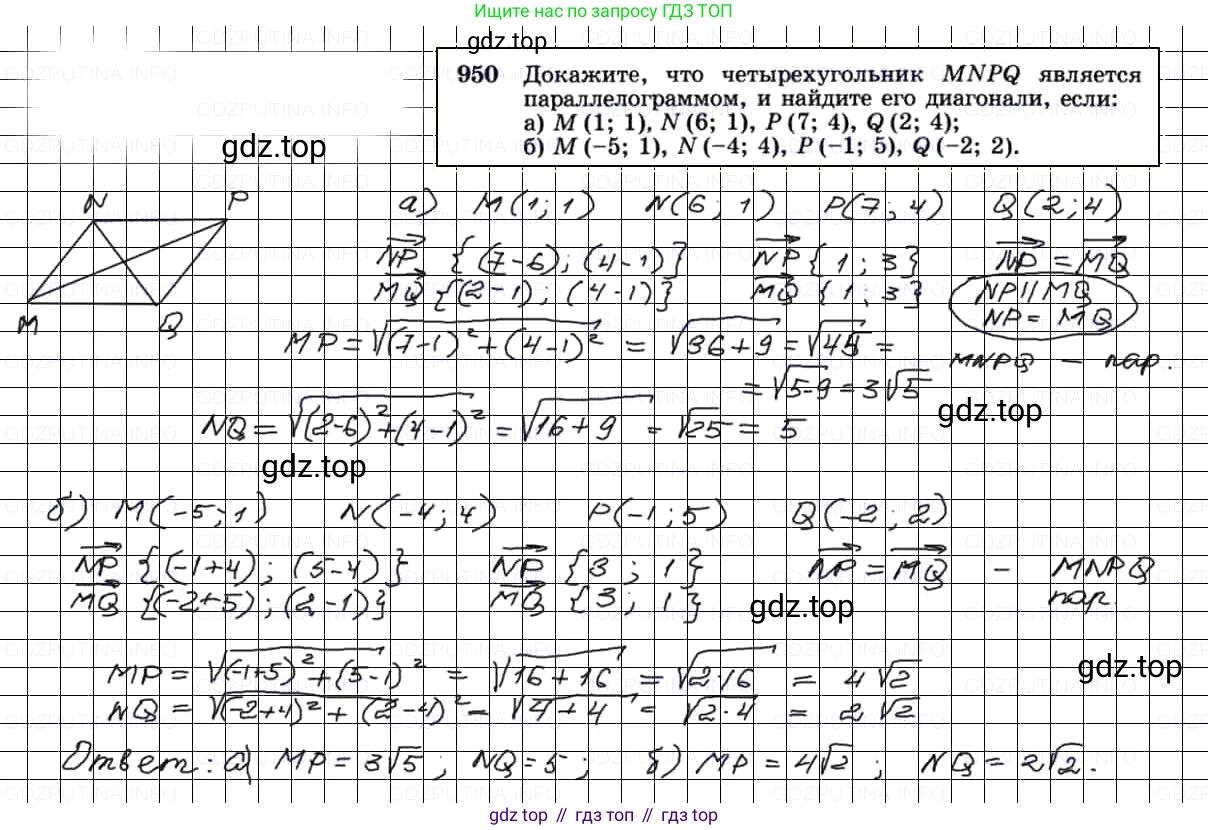 Ищите нас по запросу ГДЗ ТОП
gdz.top
950 Докажите, что четырехугольник MNPQ является
параллелограммом, и найдите его диагонали, если:
а) M (1; 1), N (6; 1), P (7; 4), Q (2; 4);
б) M (−5; 1), N (−4; 4), P (−1; 5), Q (−2; 2).
gdz.top
N P
M Q
а) M(1;1) N(6;1) P(7;4) Q(2;4)
NP {(7-6);(4-1)} NP {1;3} NP = MQ
MQ {(2-1);(4-1)} MQ {1;3} NP||MQ
NP = MQ
MP = √(7-1)²+(4-1)² = √36+9 = √45 =
MNPQ – пар.
= √5·9 = 3√5
gdz.top
NQ = √(2-6)²+(4-1)² = √16+9 = √25 = 5
gdz.top
б) M(-5;1) N(-4;4) P(-1;5) Q(-2;2)
NP {(-1+4);(5-4)} NP {3;1} NP = MQ – MNPQ
MQ {(-2+5);(2-1)} MQ {3;1} пар.
gdz.top
MP = √(-1+5)²+(5-1)² = √16+16 = √2·16 = 4√2
gdz.top
NQ = √(-2+4)²+(2-4)² = √4+4 = √2·4 = 2√2
Ответ: а) MP = 3√5; NQ = 5; б) MP = 4√2; NQ = 2√2.
gdz.top // гдз топ // gdz top
GDZPUTINA.INFO